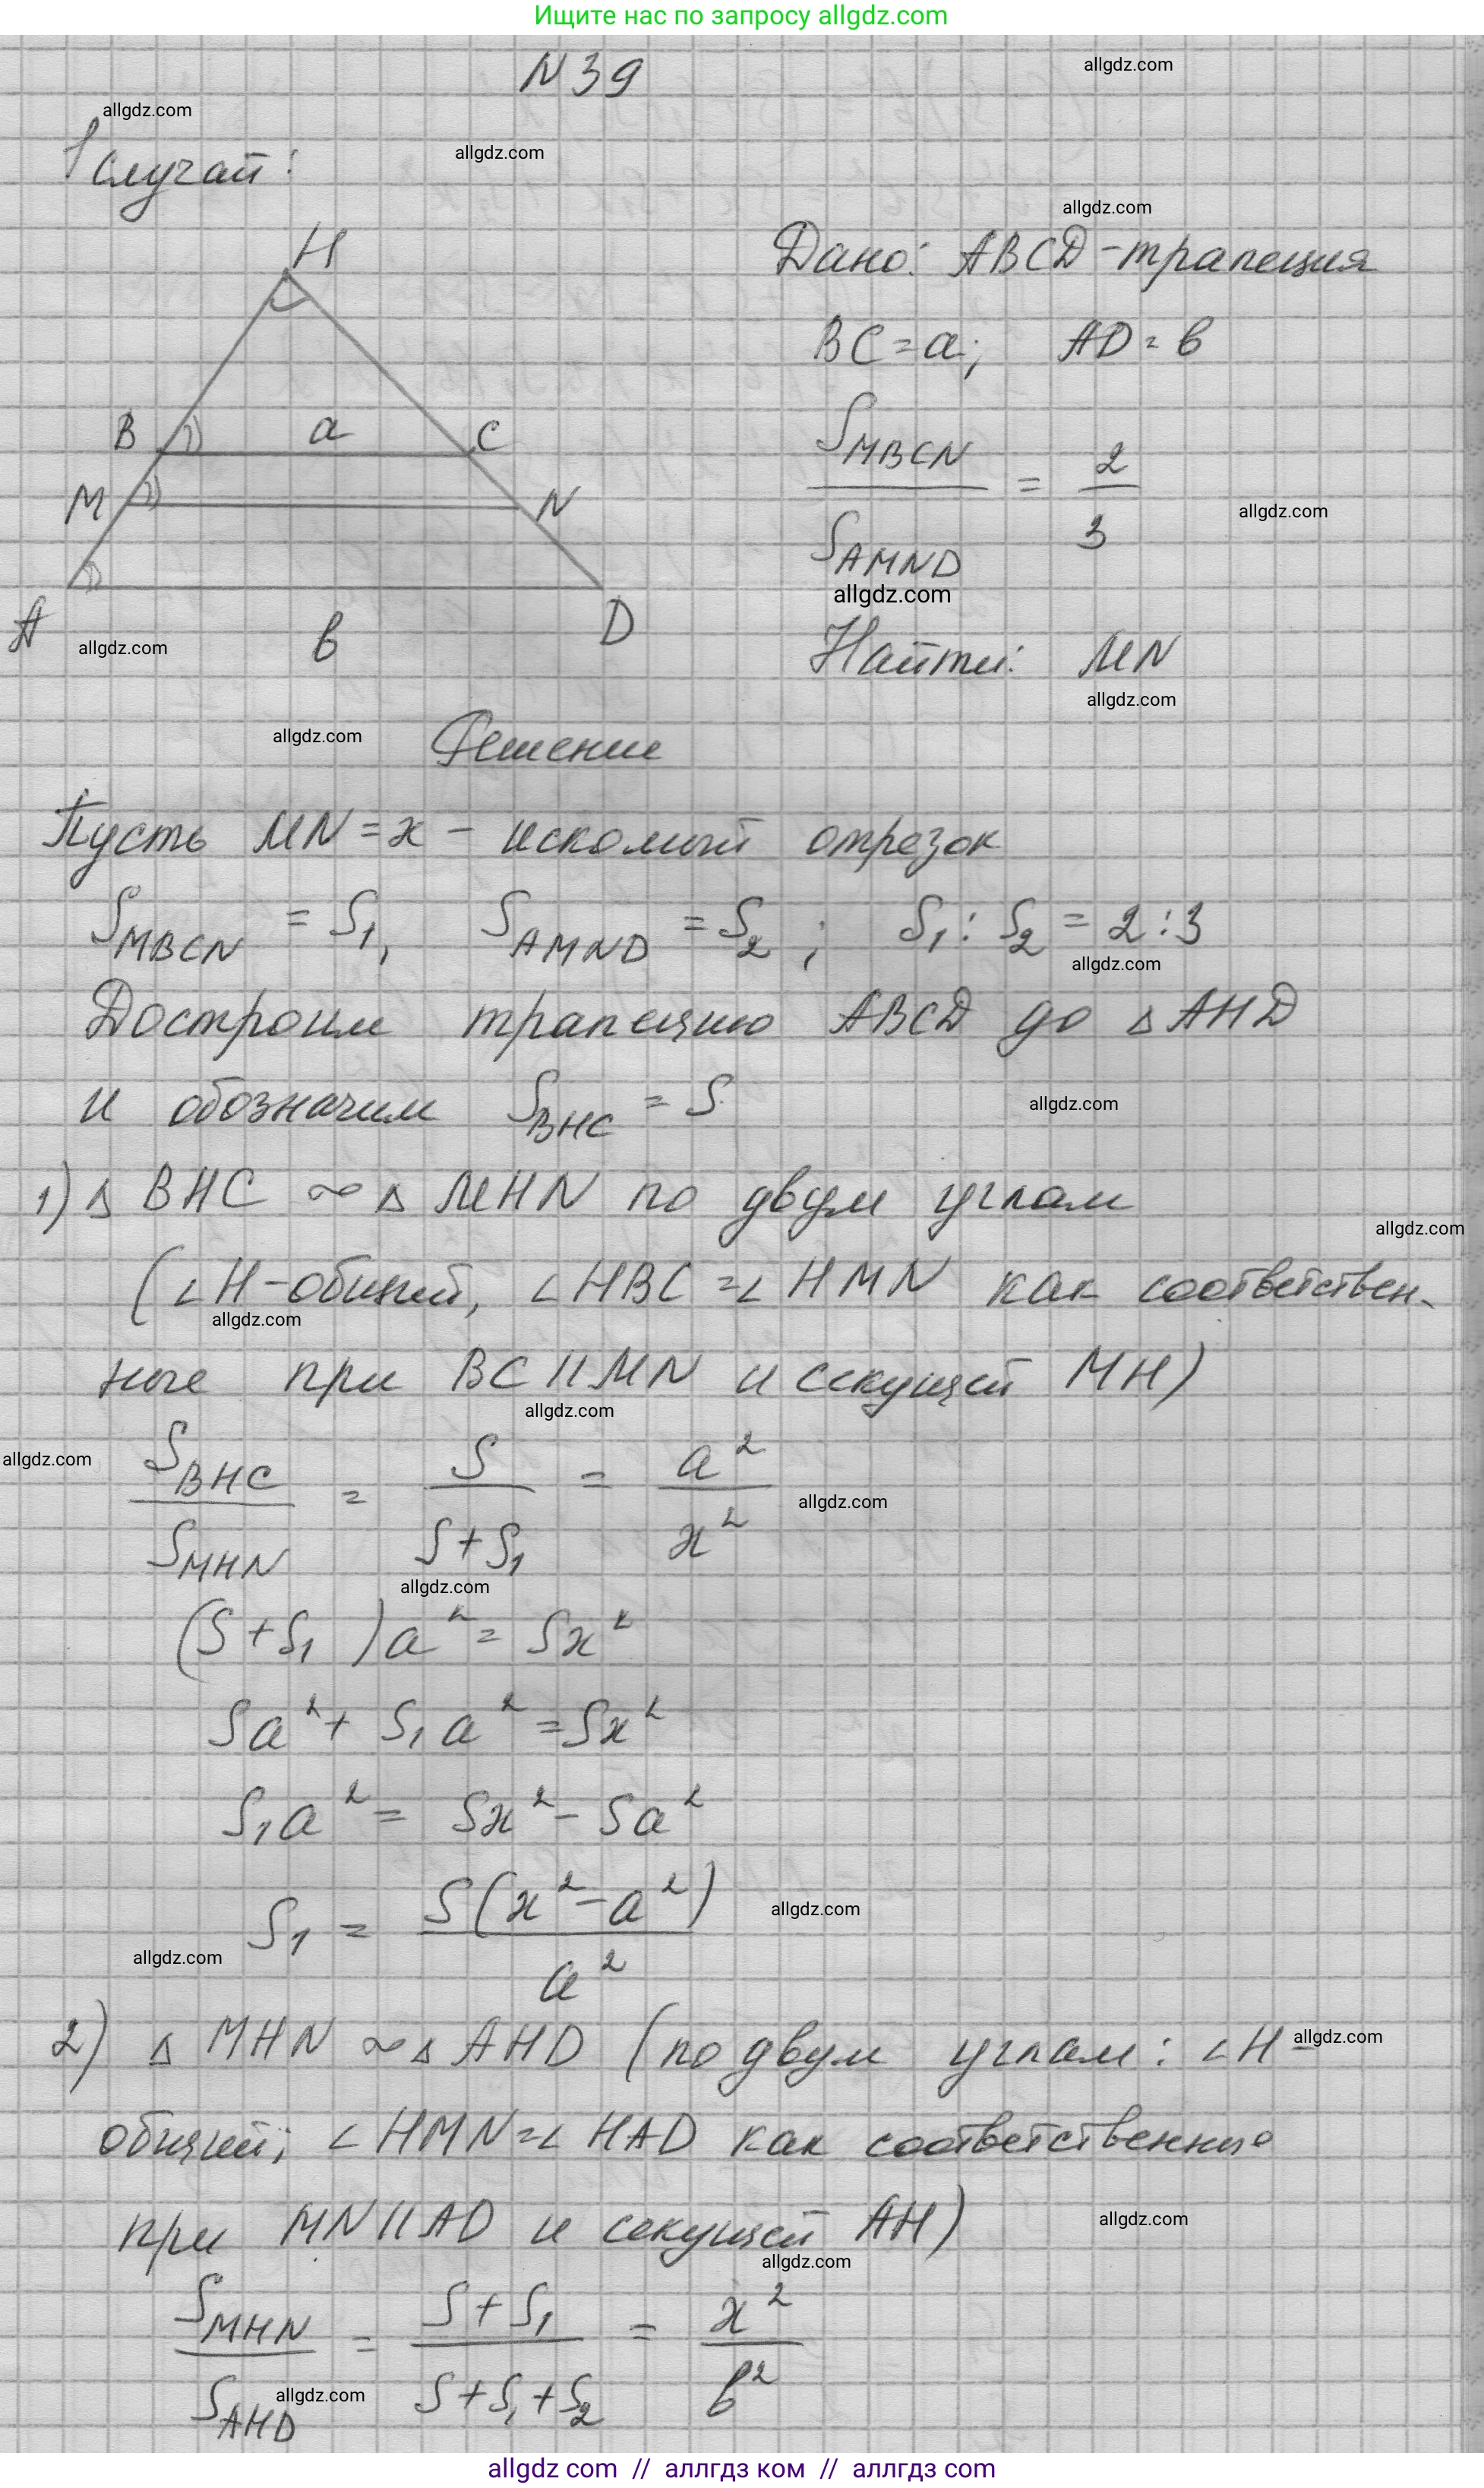 Ищите нас по запросу allgdz.com
N 39
allgdz.com
allgdz.com
allgdz.com
1 случай:
allgdz.com
H
Дано: ABCD - трапеция
BC = a; AD = b
B a C
S_MBCN / S_AMND = 2 / 3
M N
allgdz.com
allgdz.com
A b D
allgdz.com
Найти: MN
allgdz.com
allgdz.com
Решение
Пусть MN = x - искомый отрезок
S_MBCN = S₁, S_AMND = S₂; S₁ : S₂ = 2 : 3
allgdz.com
Достроим трапецию ABCD до △AHD
и обозначим S_BHC = S
allgdz.com
1) △ BHC ∾ △ MHN по двум углам
allgdz.com
(∠H - общий, ∠HBC = ∠HMN как соответствен-
allgdz.com
ные при BC || MN и секущей MH)
allgdz.com
allgdz.com
S_BHC / S_MHN = S / (S + S₁) = a² / x²
allgdz.com
allgdz.com
(S + S₁)a² = Sx²
Sa² + S₁a² = Sx²
S₁a² = Sx² - Sa²
S₁ = S(x² - a²) / a²
allgdz.com
allgdz.com
2) △ MHN ∾ △ AHD (по двум углам: ∠H -
allgdz.com
общий; ∠HMN = ∠HAD как соответственные
при MN || AD и секущей AH)
allgdz.com
allgdz.com
S_MHN / S_AHD = (S + S₁) / (S + S₁ + S₂) = x² / b²
allgdz.com
allgdz com // аллгдз ком // аллгдз com